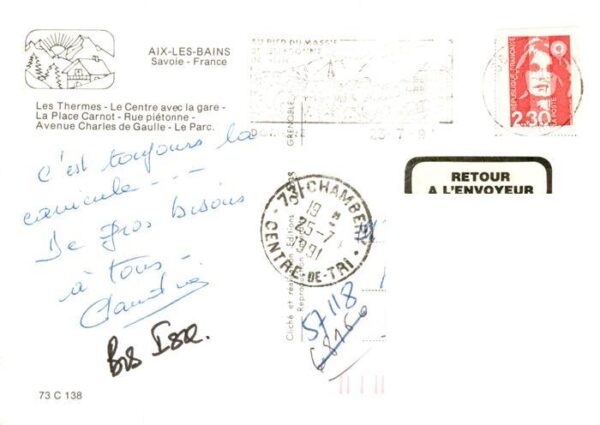 AIX-LES-BAINS
Savoie - France
Les Thermes - Le Centre avec la gare -
La Place Carnot - Rue piétonne -
Avenue Charles de Gaulle - Le Parc.
C'est toujours la
canicule - - -
De gros bisous
à tous -
Bis Isa.
73 C 138
AU PIED DU MASSIF
GRENOBLE
23-7-91
RÉPUBLIQUE FRANÇAISE
LA POSTE
2,30
RETOUR
A L'ENVOYEUR
73 CHAMBERY
19 H
25-7
1991
CENTRE-DE-TRI
Cliché et
Editions
57118
68160